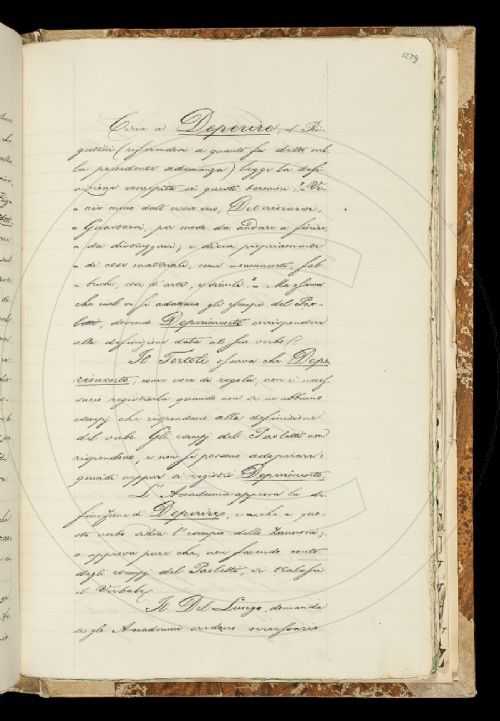 1279
Circa a Deperire, il Ri-
gutini (riferendosi a quanto fu detto nel-
la precedente adunanza) legge la defi-
nizione concepita in questi termini: "Ve-
" nir meno dall'esser suo, Deteriorarsi,
" Guastarsi, per modo da andare a finire,
" da distruggersi; e dicesi propriamente
" di cose materiali, come monumenti, fab-
" briche, cose di arte, e simili". Ma osserva
che mal vi si adattano gli esempi del Pao-
letti, dovendo Deperimento corrispondere
alla definizione data al suo verbo.
Il Tortoli osserva che Depe-
rimento, come voce di regola, non è neces-
sario registrarla quando non se ne abbiano
esempj che rispondano alla definizione
del verbo. Gli esempj del Paoletti non
rispondono, e non si possono adoperare;
quindi neppur si registri Deperimento.
L'Accademia approva la de-
finizione di Deperire, e anche a que-
sto verbo l'esempio dello Zannoni;
e approva pure che, non facendo conto
degli esempj del Paoletti, si tralasci
il Verbale.
Il Del Lungo domanda
se gli Accademici credano necessario